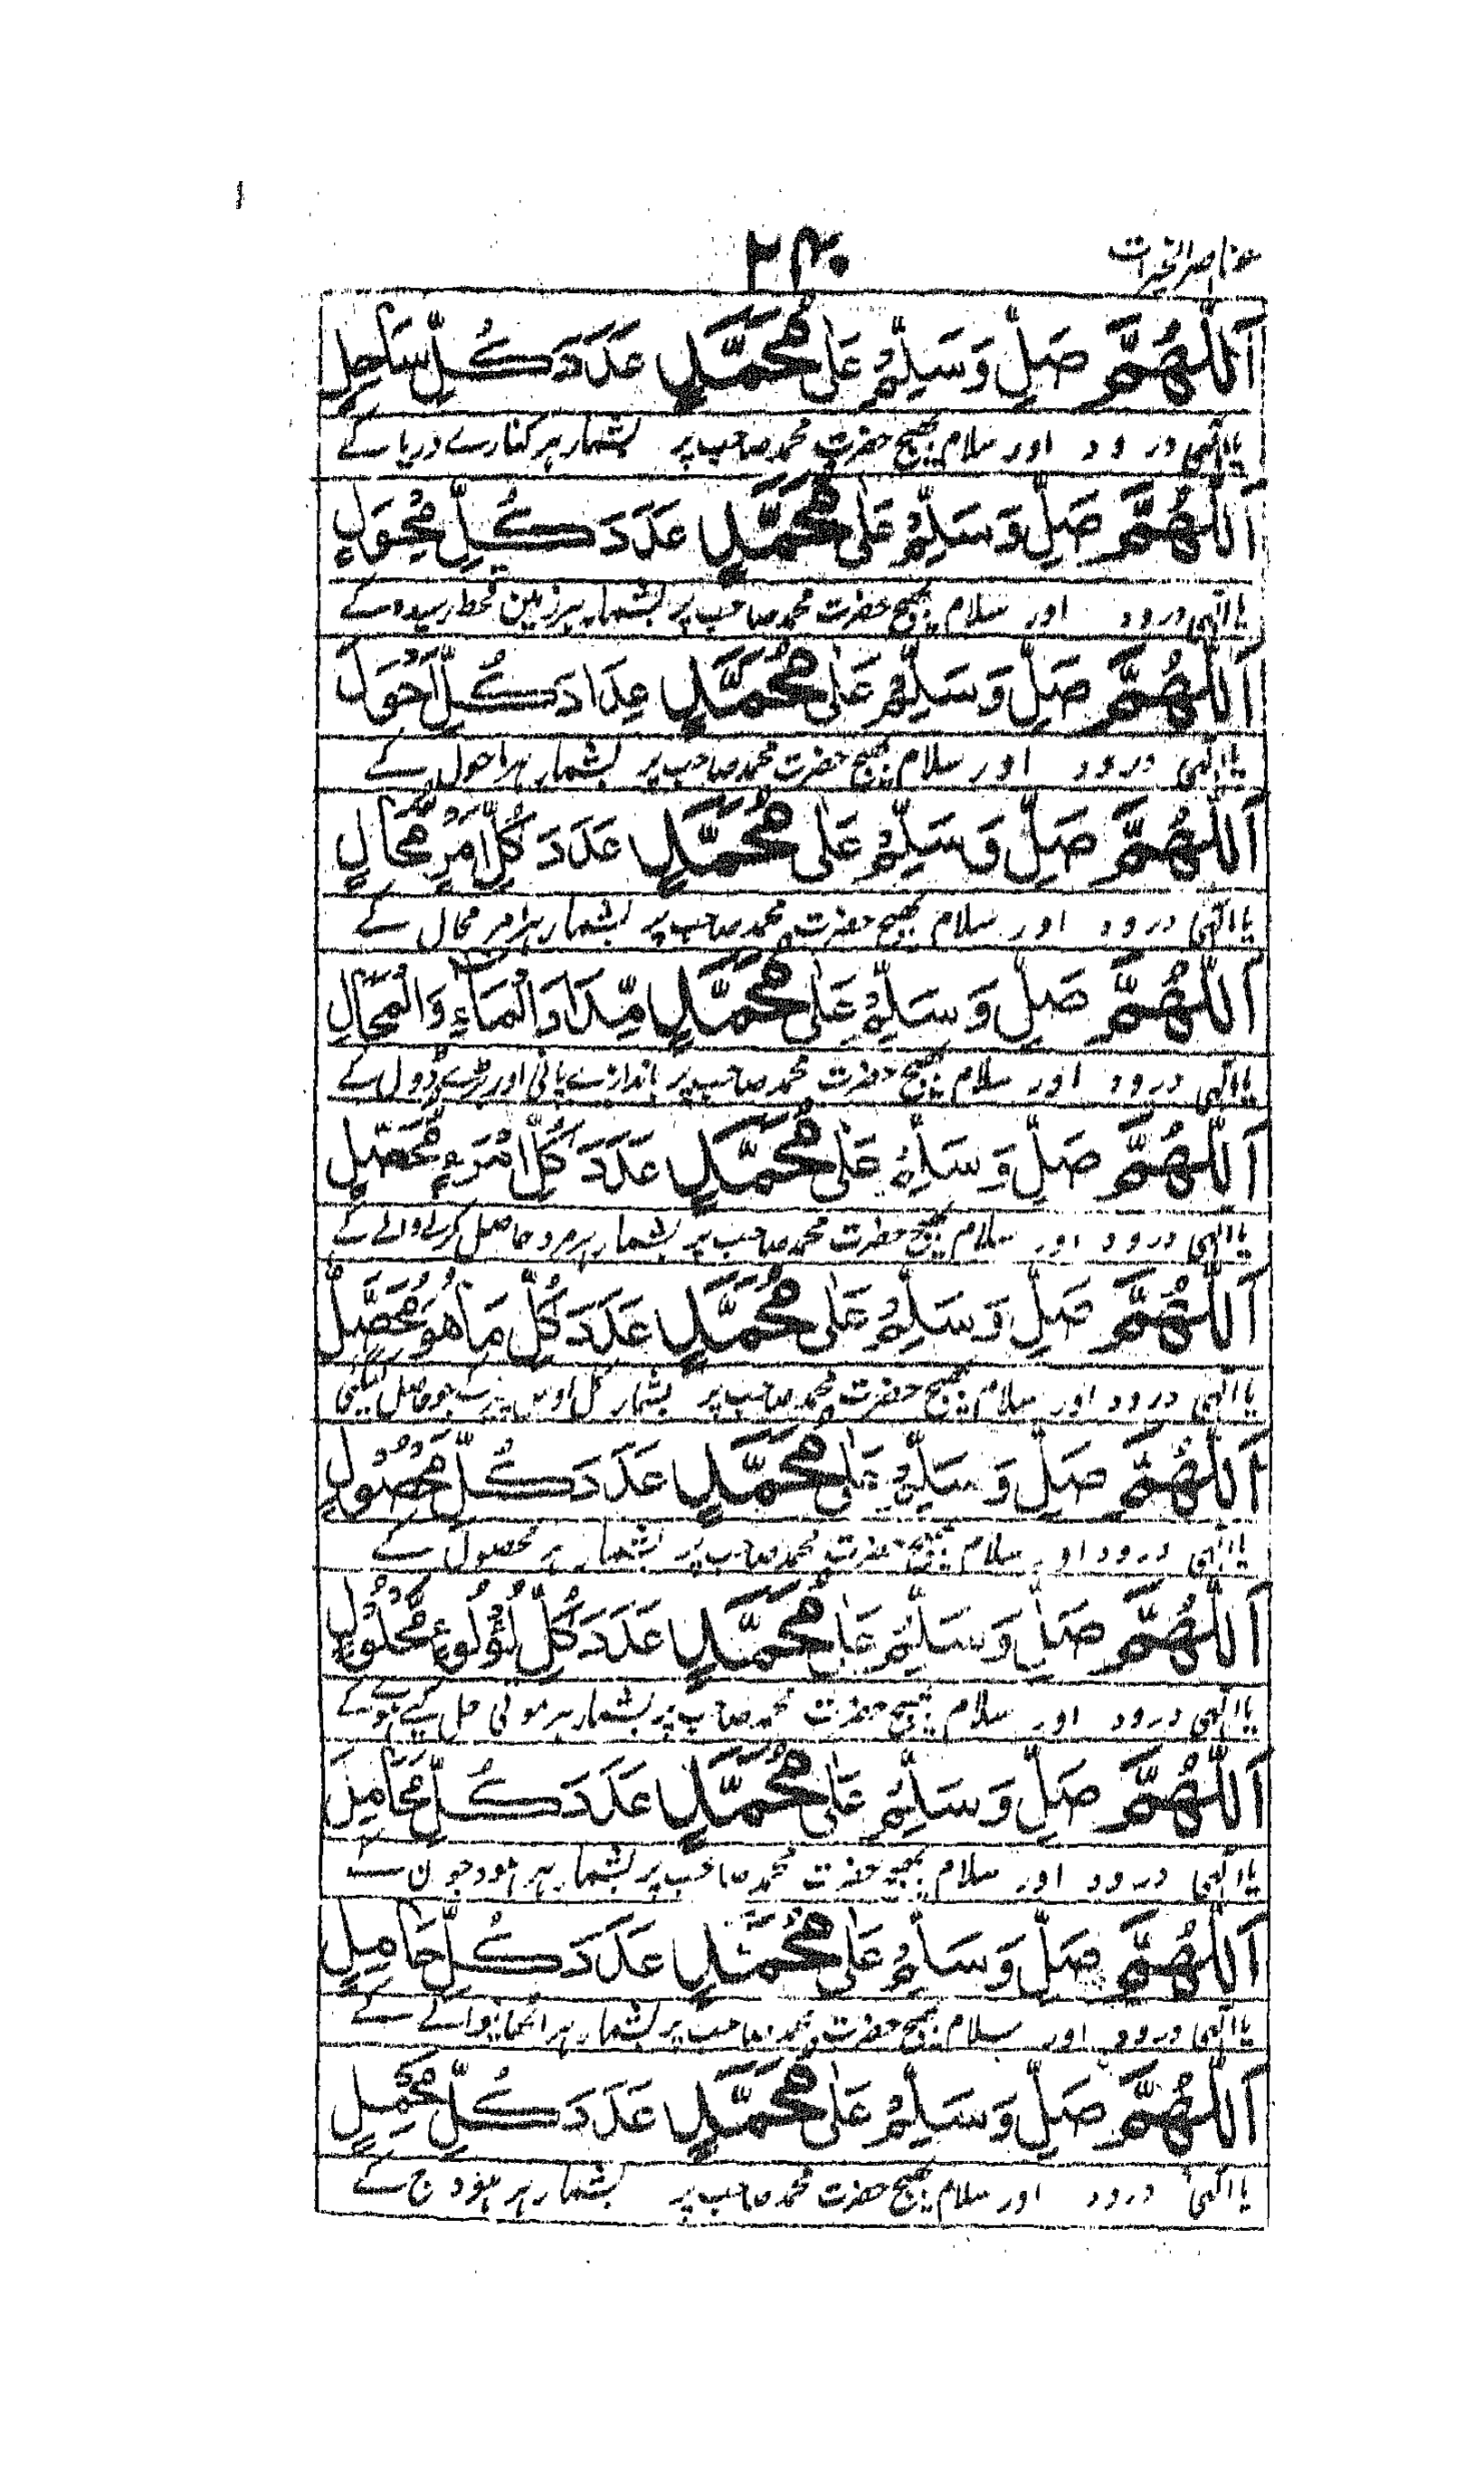 عناصر الخیرات
۲۴۰
اَللّٰهُمَّ صَلِّ وَسَلِّمْ عَلٰی مُحَمَّدٍ عَدَدَ كُلِّ سَاحِلٍ
یا الٰہی درود اور سلام بھیج حضرت محمد صاحب پر بشمار ہر کنارے دریا کے
اَللّٰهُمَّ صَلِّ وَسَلِّمْ عَلٰی مُحَمَّدٍ عَدَدَ كُلِّ مُحْوَلٍ
یا الٰہی درود اور سلام بھیج حضرت محمد صاحب پر بشمار ہر زمین قحط رسیدہ کے
اَللّٰهُمَّ صَلِّ وَسَلِّمْ عَلٰی مُحَمَّدٍ عِدَادَ كُلِّ اَحْوَلَ
یا الٰہی درود اور سلام بھیج حضرت محمد صاحب پر بشمار ہر احول کے
اَللّٰهُمَّ صَلِّ وَسَلِّمْ عَلٰی مُحَمَّدٍ عَدَدَ كُلِّ اَمْرٍ مُّحَالٍ
یا الٰہی درود اور سلام بھیج حضرت محمد صاحب پر بشمار ہر امر محال کے
اَللّٰهُمَّ صَلِّ وَسَلِّمْ عَلٰی مُحَمَّدٍ مِّدَادَ الْمَآءِ وَالْمَحَالِ
یا الٰہی درود اور سلام بھیج حضرت محمد صاحب پر باندازے پانی اور بڑے ڈول کے
اَللّٰهُمَّ صَلِّ وَسَلِّمْ عَلٰی مُحَمَّدٍ عَدَدَ كُلِّ امْرَءٍ مُّحَصِّلٍ
یا الٰہی درود اور سلام بھیج حضرت محمد صاحب پر بشمار ہر مرد حاصل کرنے والے کے
اَللّٰهُمَّ صَلِّ وَسَلِّمْ عَلٰی مُحَمَّدٍ عَدَدَ كُلِّ مَا هُوَ مُحَصَّلٌ
یا الٰہی درود اور سلام بھیج حضرت محمد صاحب پر بشمار کل اوس چیز کے جو حاصل کیگئی
اَللّٰهُمَّ صَلِّ وَسَلِّمْ عَلٰی مُحَمَّدٍ عَدَدَ كُلِّ مَحْصُوْلٍ
یا الٰہی درود اور سلام بھیج حضرت محمد صاحب پر بشمار ہر محصول کے
اَللّٰهُمَّ صَلِّ وَسَلِّمْ عَلٰی مُحَمَّدٍ عَدَدَ كُلِّ لُؤْلُوءٍ مَّحْلُوْلٍ
یا الٰہی درود اور سلام بھیج حضرت محمد صاحب پر بشمار ہر موتی حل کیے ہوئے کے
اَللّٰهُمَّ صَلِّ وَسَلِّمْ عَلٰی مُحَمَّدٍ عَدَدَ كُلِّ مَحَامِلَ
یا الٰہی درود اور سلام بھیج حضرت محمد صاحب پر بشمار ہر ہودجون کے
اَللّٰهُمَّ صَلِّ وَسَلِّمْ عَلٰی مُحَمَّدٍ عَدَدَ كُلِّ حَامِلٍ
یا الٰہی درود اور سلام بھیج حضرت محمد صاحب پر بشمار ہر اٹھانیوالے کے
اَللّٰهُمَّ صَلِّ وَسَلِّمْ عَلٰی مُحَمَّدٍ عَدَدَ كُلِّ مَحْمِلٍ
یا الٰہی درود اور سلام بھیج حضرت محمد صاحب پر بشمار ہر ہودج کے